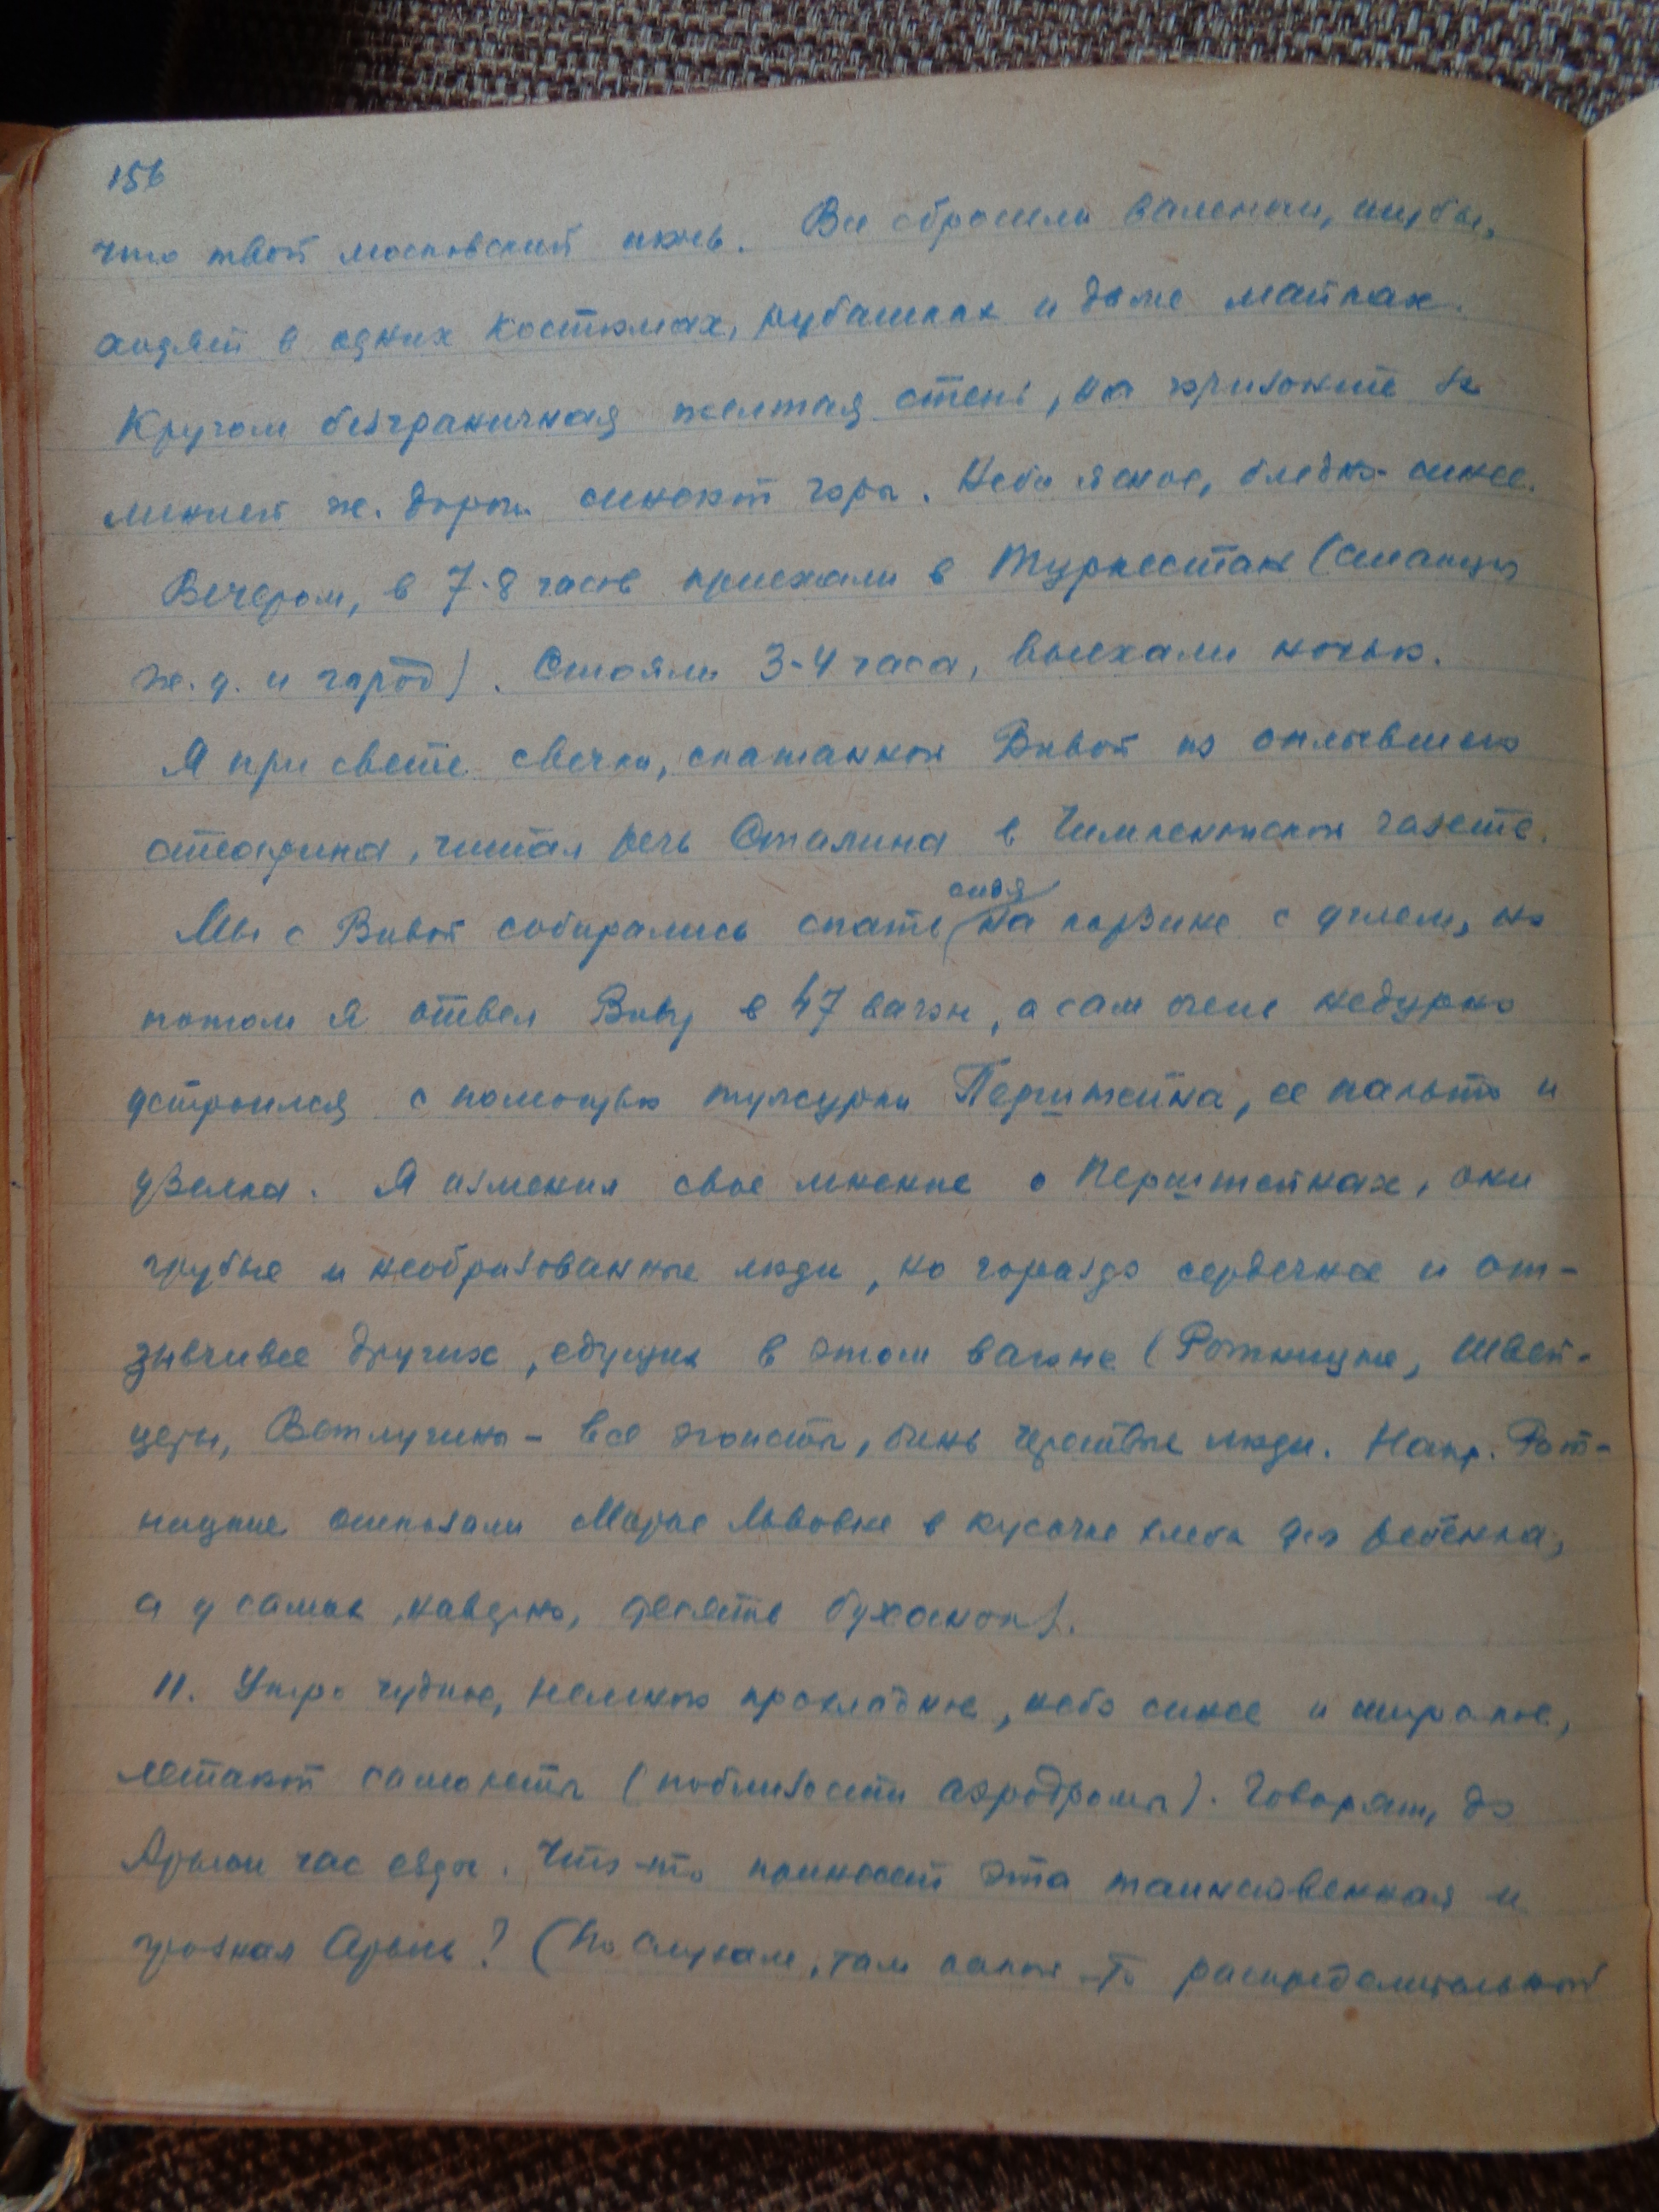 156
что твой московский июнь. Все сбросили валенки, шубы,
ходят в одних костюмах, рубашках и даже майках.
Кругом безграничная желтая степь, на горизонте за
линией ж. дороги синеют горы. Небо ясное, бледно-синее.
Вечером, в 7-8 часов приехали в Туркестан (станция
ж. д. и город). Стояли 3-4 часа, выехали ночью.
Я при свете свечки, скатанной Вивой из оплывшего
стеарина, читал речь Сталина в Чимкентской газете.
сидя
Мы с Вивой собирались спать на корзине с углем, но
потом я отвел Виву в 47 вагон, а сам очень недурно
устроился с помощью тужурки Перштейна, ее пальто и
узелка. Я изменил свое мнение о Перштейнах, они
грубые и необразованные люди, но гораздо сердечнее и от-
зывчивее других, едущих в этом вагоне (Ротницкие, Швей-
церы, Ветлугины - все эгоисты, очень черствые люди. Напр. Рот-
ницкие отказали Марье Львовне в кусочке хлеба для ребёнка,
а у самих, наверно, десять буханок).
11. Утро чудное, немного прохладное, небо синее и широкое,
летают самолеты (поблизости аэродромы). Говорят, до
Арыси час езды. Что-то принесет эта таинственная и
грозная Арысь? (По слухам, там какой-то распределительный